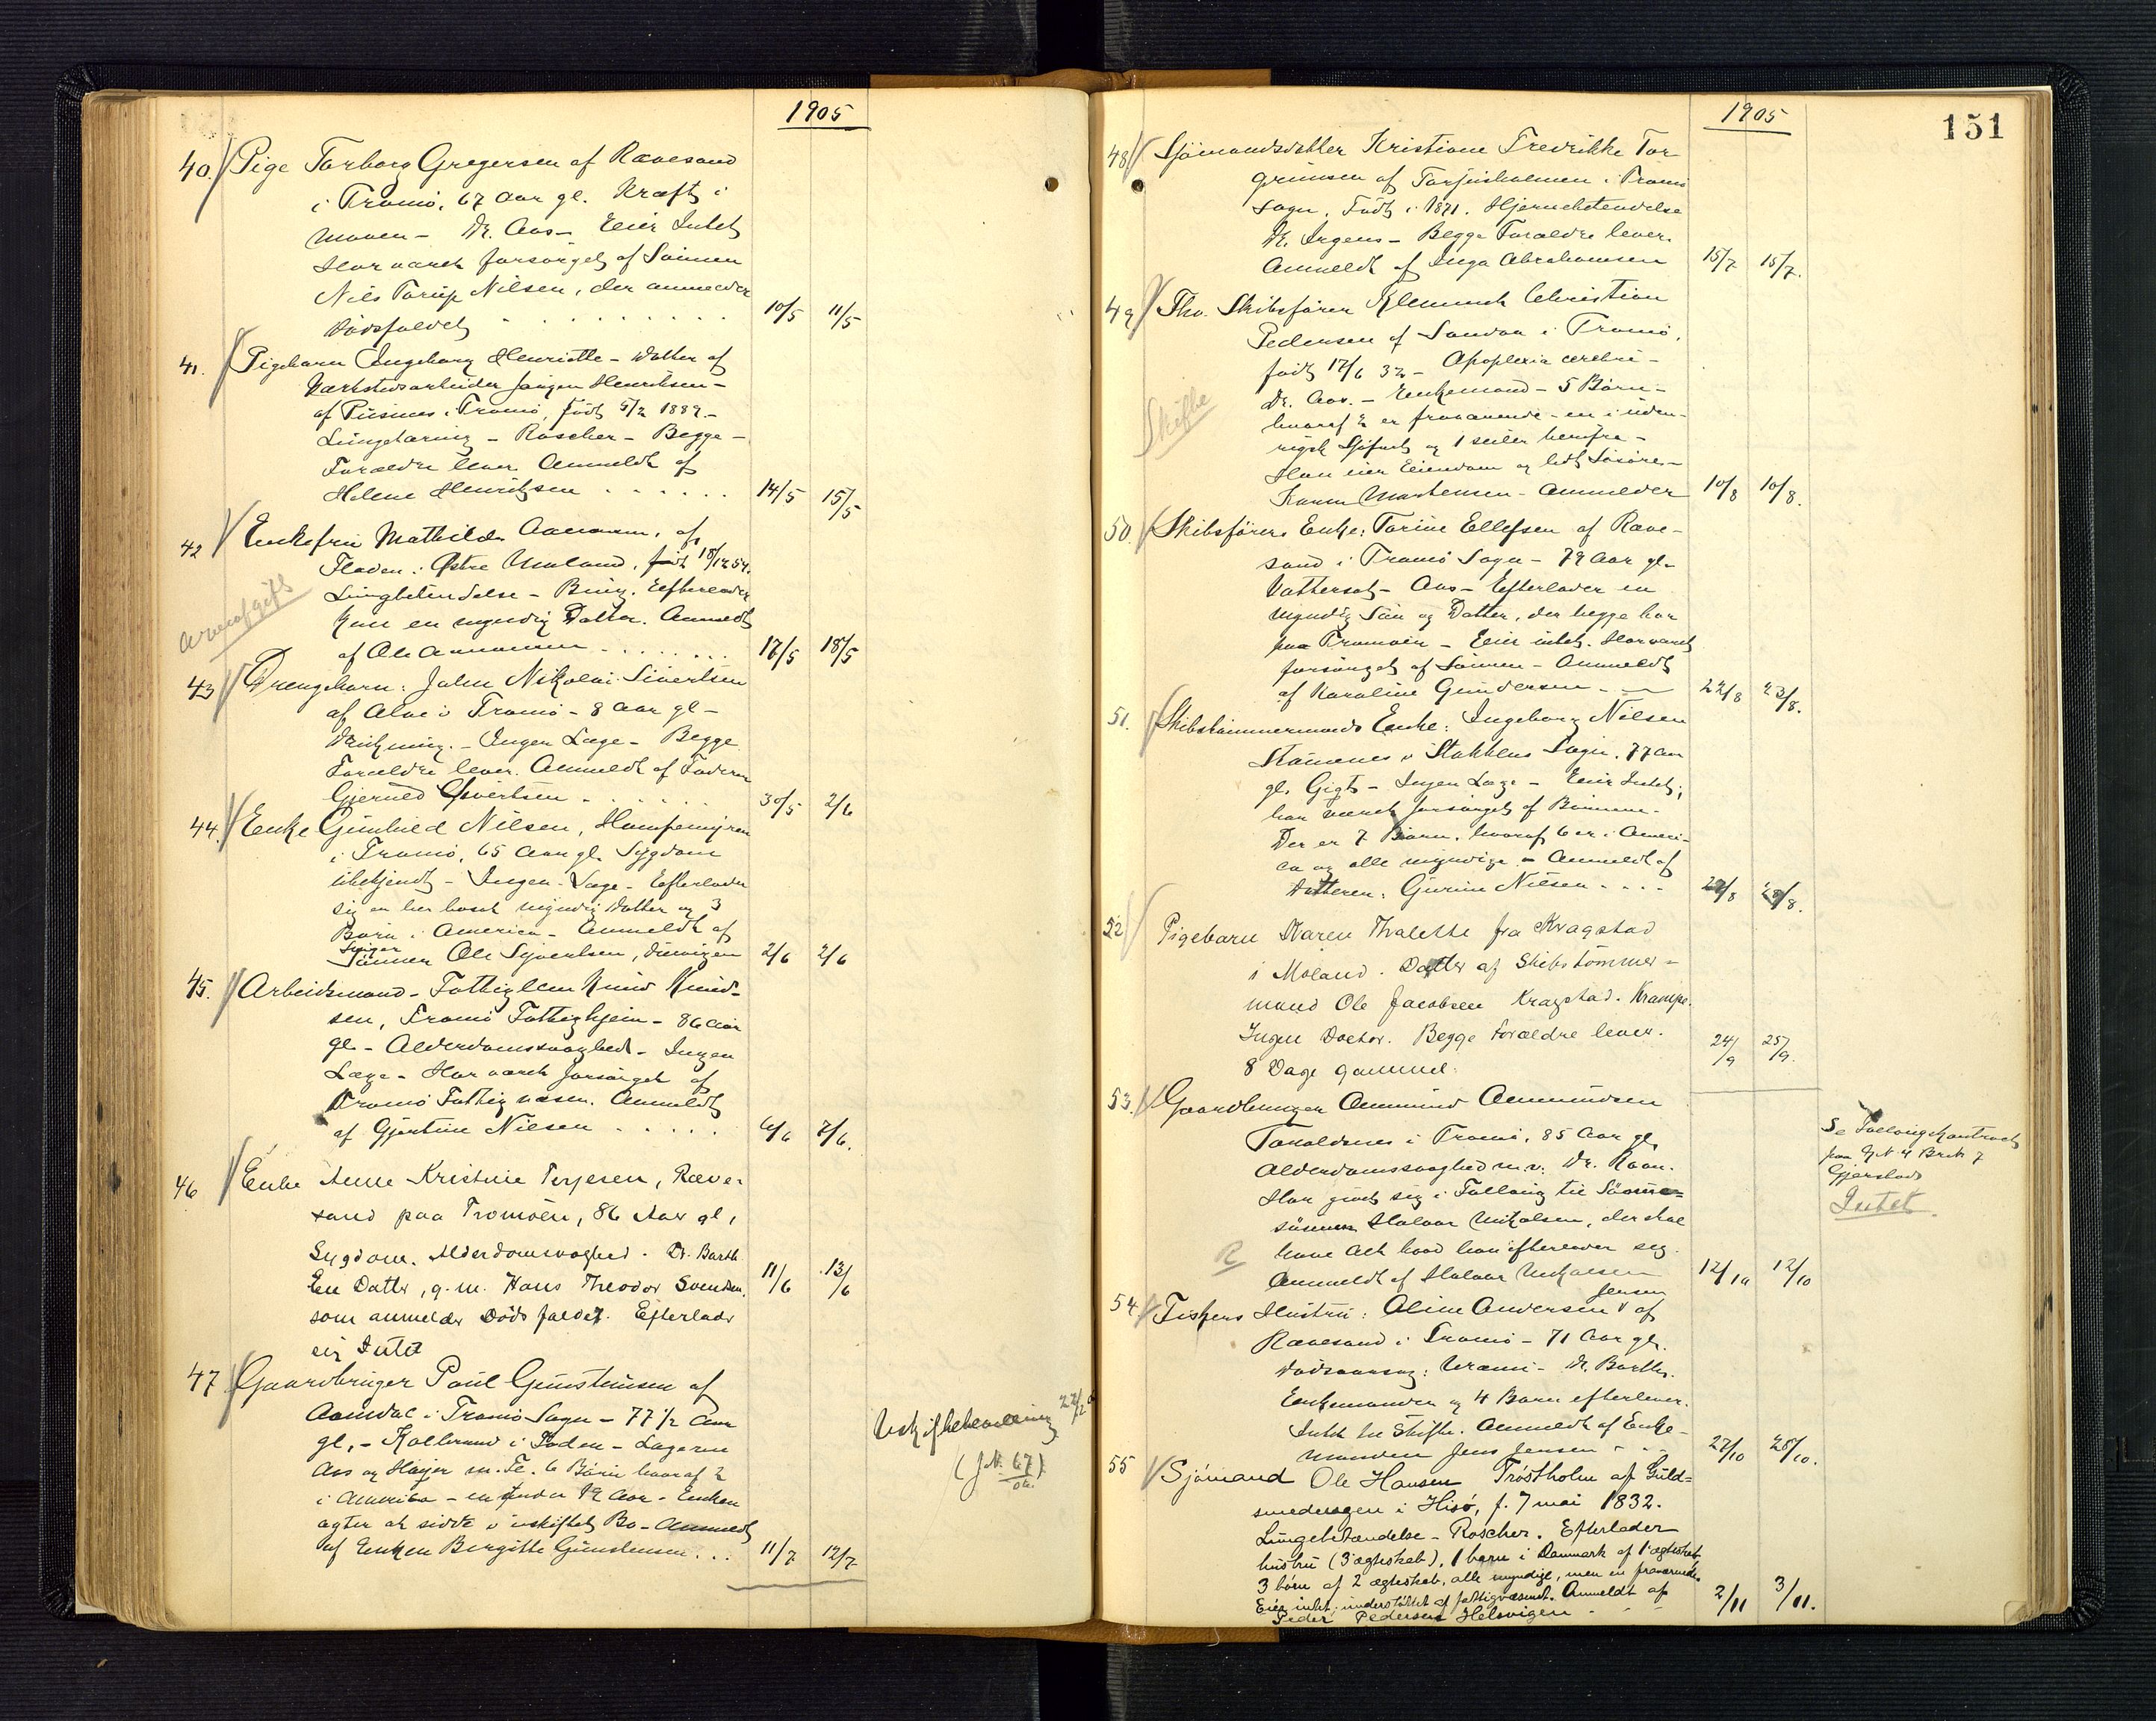 1905
40. Pige Torborg Gregersen af Rævesand
i Tromø, 67 Aar gl. Kræft i
Maven – Dr. Aas – Eier Intet
Har været forsørget af Sønnen
Nils Torup Nilsen, der anmelder
Dødsfaldet 10/5 11/5
41. Pigebarn Ingeborg Henriette – Datter af
Værkstedsarbeider Jørgen Henriksen –
af Pusnes i Tromø, født 5/2 1889 –
Lungetæring – Roscher – Begge
Forældre lever. Anmeldt af
Helene Henriksen 14/5 15/5
42 Enkefru Mathilde Aanonsen, af
Fladen i Østre Moland, født 18/12 54.
Lungbetendelse – Efterlader
kun en myndig Datter. Anmeldt
af Ole Aanonsen 17/5 18/5
Arveafgift
43 Drengebarn: John Nikolai Sivertsen
af Alve i Tromø – 8 Aar gl –
Drukning. – Ingen Læge – Begge
Forældre lever. Anmeldt af Faderen
Gjeruld Sivertsen 30/5 2/6
44. Enke Gunhild Nilsen, Hampemyren
i Tromø, 65 Aar gl. Sygdom
ubekjendt – Ingen Læge – Efterlader
sig en her bosat myndig Datter og 3
Børn i America – Anmeldt af
Sviger
Sønnen Ole Syvertsen, 2/6 2/6
45. Arbeidsmand – Fattiglem Knud Knud-
sen, Tromø Fattighjem – 86 Aar
gl – Alderdomssvaghed – Ingen
Læge – Har været forsørget af
Tromø Fattigvæsen. Anmeldt
af Gjertine Nilsen 6/6 7/6.
46 Enke Anne Kristine Terjesen,Ræve-
sand paa Tromøen, 86 Aar gl,
Sygdom. Alderdomsvaghed. Dr. Barth
En Datter, g. m. Hans Theodor Svendsen, 11/6 13/6
som anmelder Dødsfaldet. Efterlader
sig Intet
47 Gaardbruger Paul Gunstensen af
Aamdal i Tromø Sogn – 77 1/2 Aar
gl. – Koldbrand i Foden – Lægerne
Aas og Høyer m. Fl. 6 Børn hvoraf 2
i America – en under 18 Aar – Enken
agter at sidde i uskiftet Bo – Anmeldt
af Enken Birgitte Gunstensen 11/7 12/7
Uskiftebevilling 27/12
(J. N. 67)
1905
151
48 Sjømandsdatter Kristiane Fredrikke Tor-
grimsen af Torjusholmen i Tromø
Sogn. Født i 1871. Hjernebetendelse
Dr. Irgens – Begge Forældre lever.
Anmeldt af Inga Abrahamsen 15/7 15/7.
49 Fhv. Skibsfører Klemmet Christian
Pedersen af Sandøa i Tromø,
født 17/6 32 – Apoplexia cerebri –
Dr. Aas. – Enkemand – 5 Børn –
hvoraf 2 er fraværende – en i uden-
rigsk Sjøfart og 1 seiler hemfra –
Han eier Eiendom og lidt Løsøre –
Karen Mortensen – Anmelder 10/8 10/8.
Skifte
50 Skibsførers Enke: Torine Ellefsen af Ræve-
sand i Tromø Sogn – 79 Aar gl –
Vattersot – Aas – Efterlader en
myndig Søn og Datter, der begge bor
paa Tromøen – Eier intet. Har været
forsørget af Sønnen – Anmeldt
af Karoline Gundersen 22/8 23/8.
51. Skibstømmermands Enke: Ingeborg Nilsen
i Stokkens Sogn. 77 Aar
gl. Gigt – Ingen Læge – Eier Intet;
har været forsørget af Børnene –
Der er 7 Børn, hvoraf 6 er i Ameri-
ca og alle myndige – Anmeldt af
Datteren: Gurine Nilsen 28/8.
52 Pigebarn Karen Thalette fra Kragstad
i Moland. Datter af Skibstømmer-
mand Ole Jacobsen Kragstad. Krampe.
Ingen Doctor. Begge Forældre lever.
8 Dage gammel. 24/9 25/9.
53. Gaardbruger Anmund Anmundsen
Torvoldsnes i Tromø, 85 Aar gl.
Alderdomssvaghed m. v. Dr. Roan.
Har givet sig i Følloug til Sønne-
sønnen Halvor Nikolsen, der skal
have Alt hvad han efterlever sig.
Anmeldt af Halvor Nikolsen 12/10 12/10
R
Se Føllougskontract
paa G. N. 4 Br. N. 7
Gjerstad
Intet
54 Fiskers Hustru: Aline Andersen Jensen af
Rævesand i Tromø – 71 Aar gl.
Dødsaarsag: Uræmi – Dr. Barth.
Enkemanden og 4 Børn efterlever.
Intet til Skifte. Anmeldt af Enke-
manden Jens Jensen 27/10 28/10.
55 Sjømand Ole Hansen Trøstholm af Guld-
smedengen i Hisø, f. 7 mai 1832.
Lungebetændelse – Roscher. Efterlader
hustru (3' ægteskab), 1 barn i Danmark af 1' ægteskab,
3 børn af 2 ægteskab, alle myndige, men en fraværende.
Eier intet, understøttet af fattigvæsenet. Anmeldt af
Peder Pedersen Helsvigen 2/11 3/11.